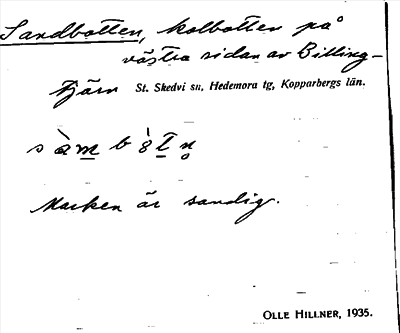 Sandbotten, kolbotten på
västra sidan av Billing-
tjärn St. Skedvi sn, Hedemora tg, Kopparbergs län.
Marken är sandig.
OLLE HILLNER, 1935.